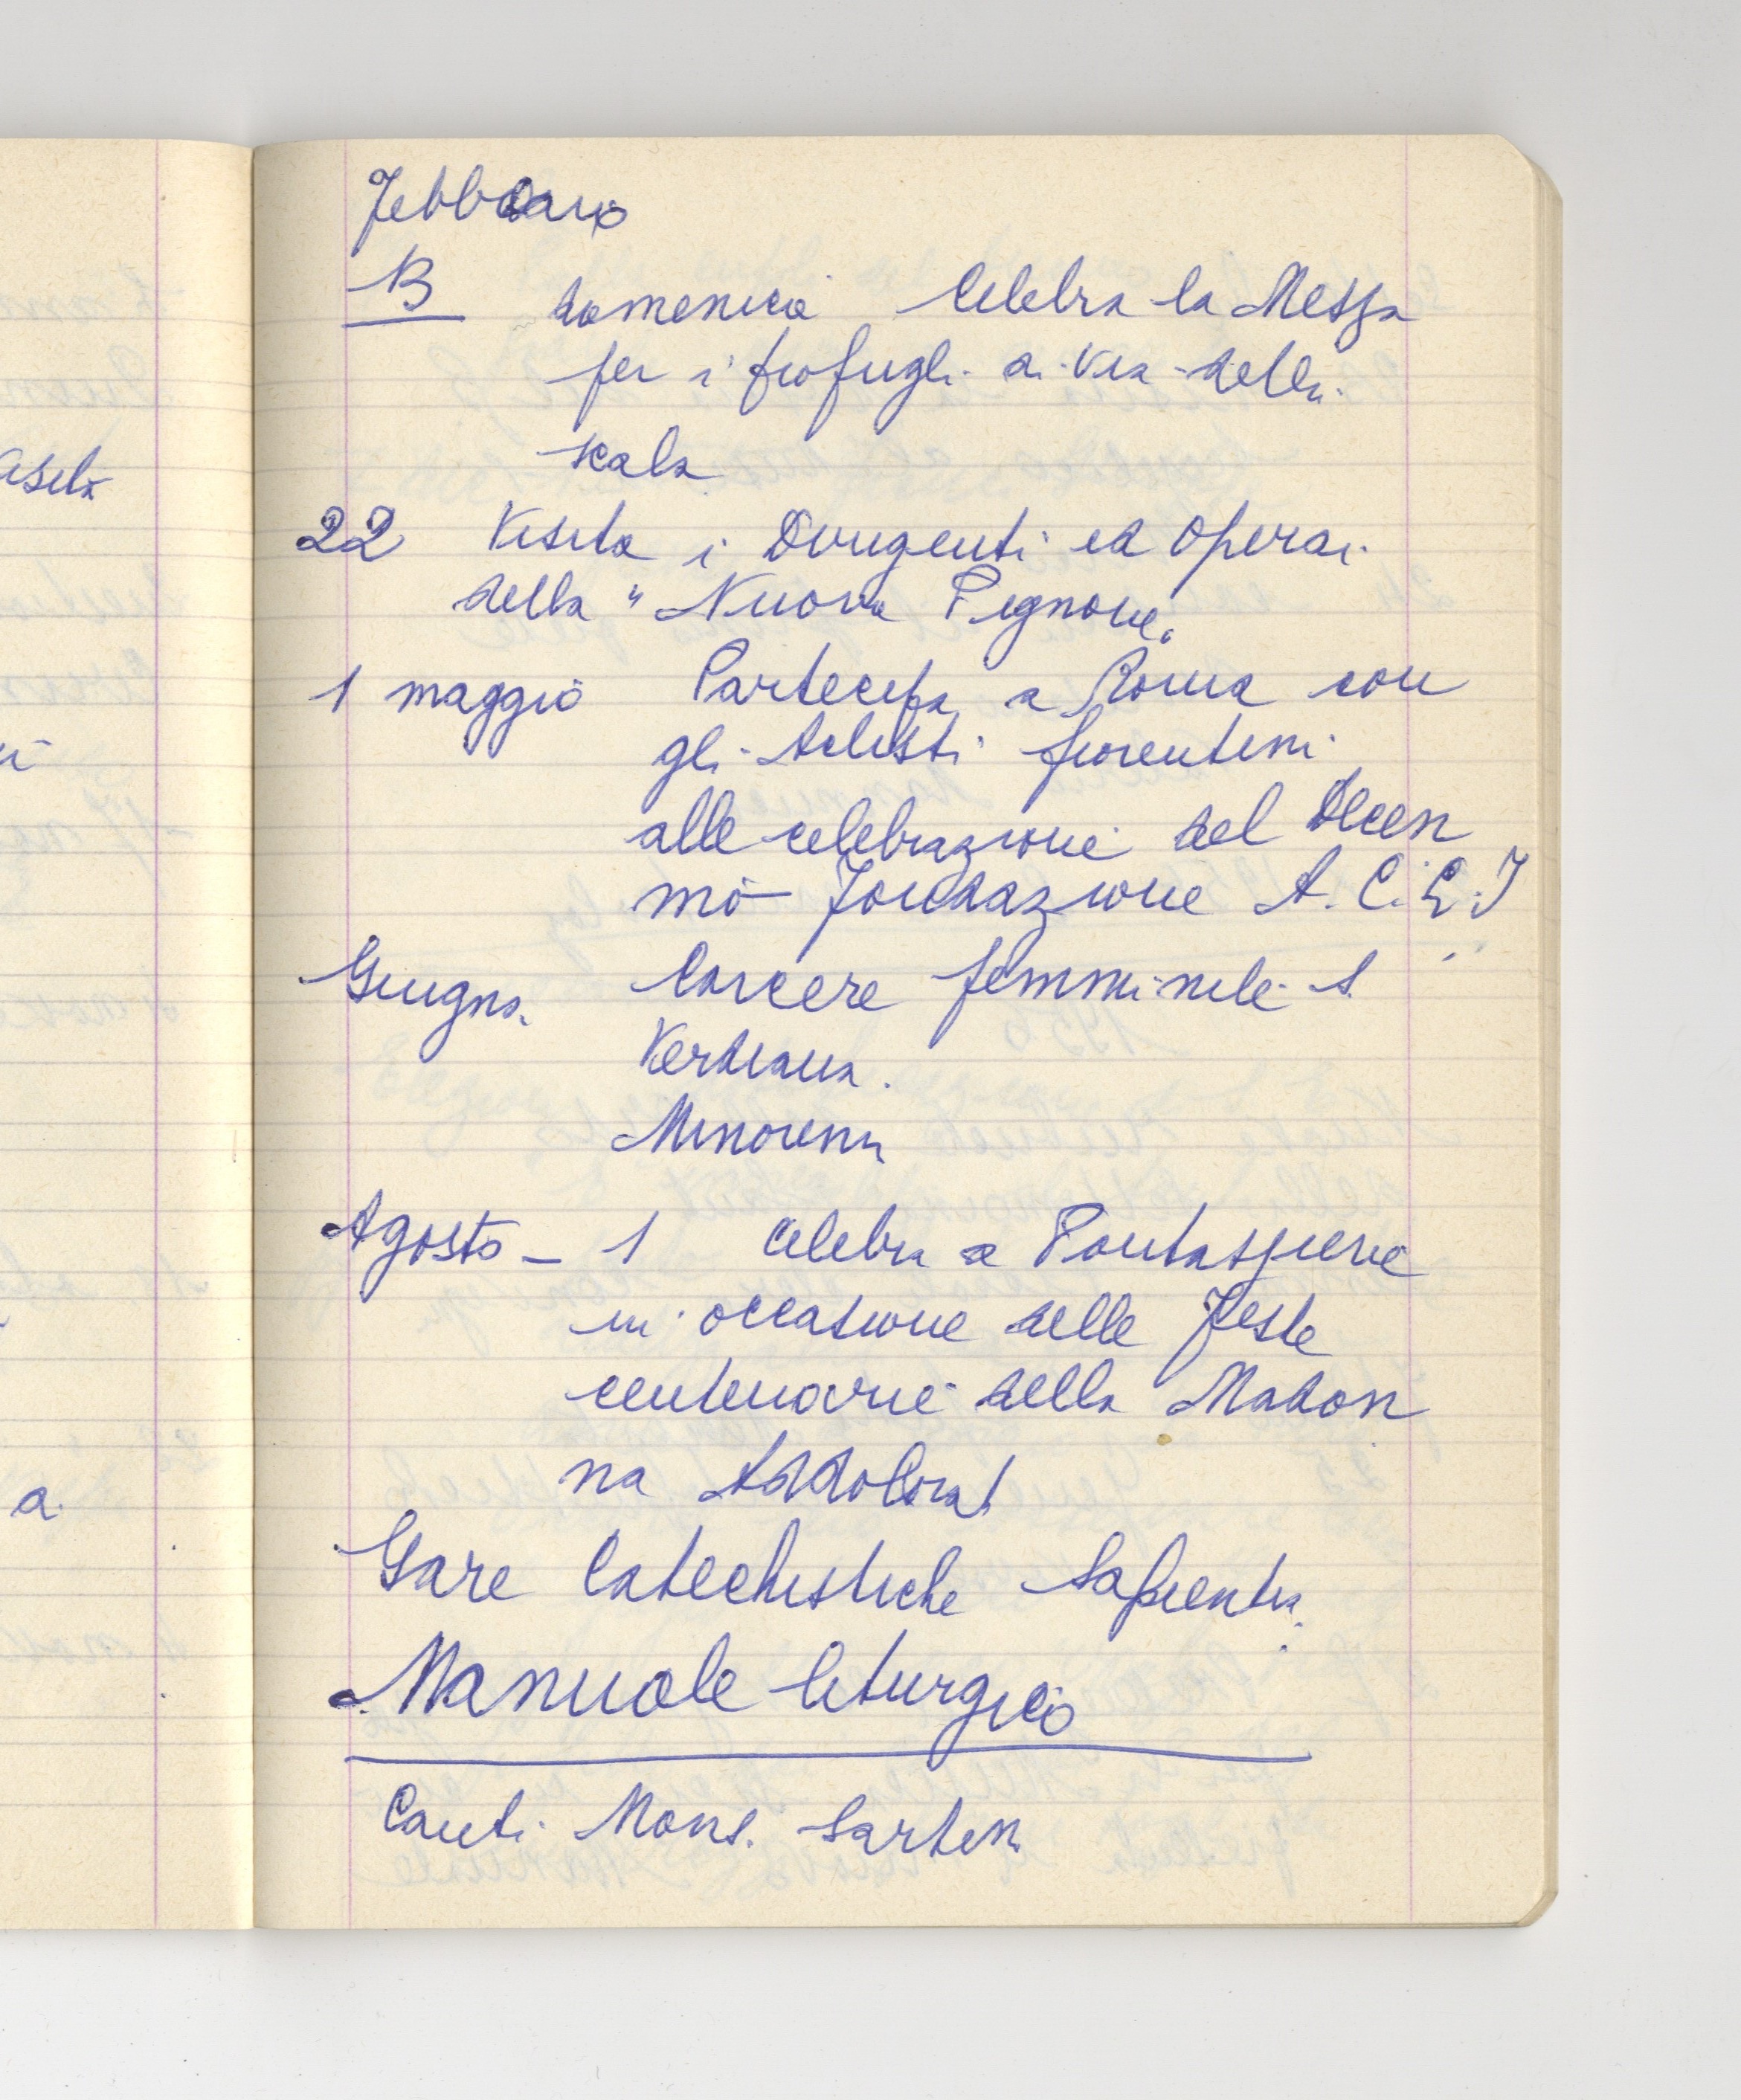 Febbraio
13 domenica Celebra la Messa
per i profughi di Via della
scala
22 Visita i Dirigenti ed Operai
della "Nuova Pignone"
1 maggio Partecipa a Roma con
gli Aclisti fiorentini
alle celebrazioni del Decen
nio Fondazione A.C.L.I
Giugno Carcere femminile S.
Verdiana.
Minorenni
Agosto - 1 Celebra a Pontassieve
in occasione delle Feste
centenarie della Madon
na Addolorat
Gare Catechistiche Sapientia
Manuale liturgico
Canti Mons. Bartolucci